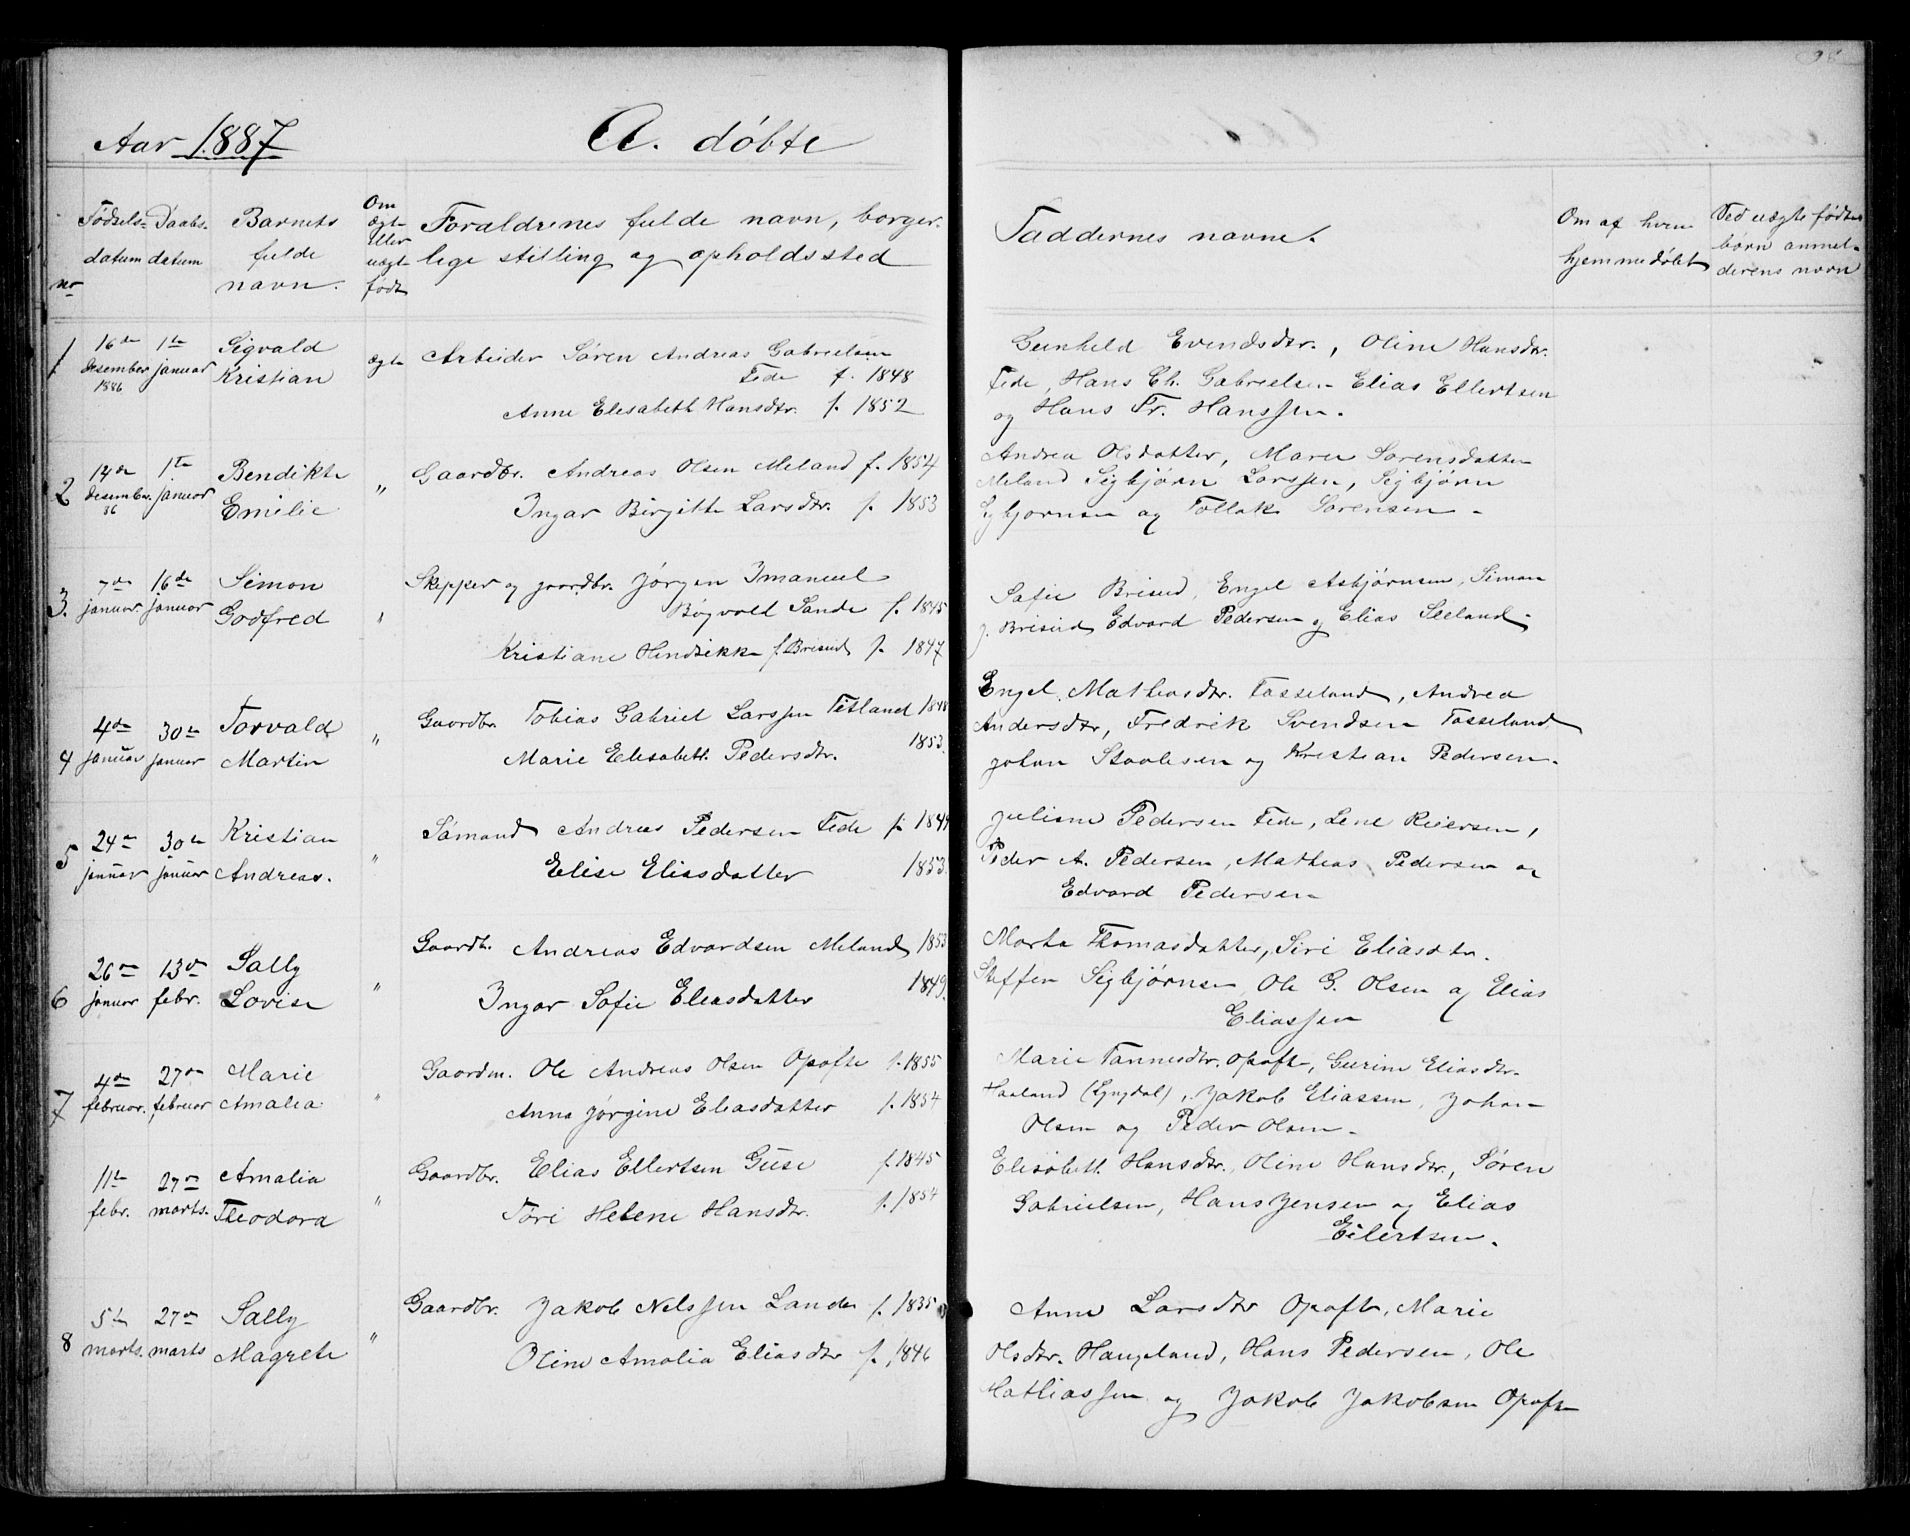 Aar 1887
A. döbte
nr
Födsels-
datum
Daabs-
datum
Barnets
fulde
navn.
Om
ægte
eller
uægte
født
Foraldrenes fulde navn, borger-
lige stilling og opholdssted
Faddernes navne.
Om af hvem
hjemmedøbt
Ved uægte fødte
børn anmel-
derens navn
1
16de
desember
1886
1te
januar
Sigvald
Kristian
ægte
Arbeider Søren Andreas Gabrielsen
Fede f. 1848
Anne Elisabeth Hansdtr. f. 1852
Gunhild Evendsdtr., Oline Hansdtr.
Fede, Hans Ch. Gabrielsen Elias Ellertsen
og Hans Fr. Hanssen.
2
14de
desember.
86
1te
januar
Bendikte
Emilie
"
Gaardbr. Andreas Olsen Meland f. 1854
Ingar Birgitte Larsdtr. f. 1853
Andrea Olsdatter, Maren Sørensdatter
Meland Sigbjørn Larssen, Sigbjørn
Sigbjørnsen og Tollak Sørensen -
3.
7de
januar.
16de
januar
Simon
Godfred
"
Skipper og gaardbr. Jørgen Imanuel
Bøgvald Sande f. 1845
Kristiane Hendrikke f. Brisud f. 1847
Sofie Brisud, Engel Asbjørnsen, Simon
J. Brisud Edvard Pedersen og Elias Sleland
4
4de
januar
30te
januar
Torvald
Martin
"
Gaardbr. Tobias Gabriel Larssen Fitland 1848
Marie Elisabeth Pedersdtr. 1853.
Engel Mathiasdtr. Fasseland, Andrea
Andersdtr, Fredrik Svendsen Fasseland
Johan Staalesen og Kristian Pedersen.
5
24de
januar
30te
januar
Kristian
Andreas.
"
Sømand Andreas Pedersen Fede f. 1849
Elise Eliasdatter 1853.
Juliane Pedersen Fede, Lene Reiersen,
Peder A. Pedersen, Mathias Pedersen og
Edvard Pedersen
6
26de
januar
13de
febr.
Sally
Lovise
"
Gaardbr. Andreas Edvardsen Meland 1853
Ingar Sofie Eliasdatter 1849.
Marta Thomasdatter, Siri Eliasdtr.
Steffen Sigbjørnsen Ole G. Olsen og Elias
Eliassen
7
4de
februar.
27de
februar
Marie
Amalia
"
Gaardm. Ole Andreas Olsen Opofte f. 1855
Anna Jørgine Eliasdatter f. 1854
Marie Tønnesdtr. Opoft, Gurine Eliasdtr.
Haaland (Lyngdal), Jakob Eliassen, Johan
Olsen og Peder Olsen.
11te
febr.
27de
marts.
Amalia
Theodora
"
Gaardbr. Elias Ellertsen Guse f. 1845
Tori Helene Hansdtr. f. 1854
Elisabeth Hansdtr., Oline Hansdtr., Søren
Gabrielsen, Hans Jensen og Elias
Eilertsen.
8
5te
marts.
27de
marts
Sally
Magrete
"
Gaardbr. Jakob Nelssen Lande f. 1835
Oline Amalia Eliasdtr f. 1846
Anne Larsdtr Opoft, Marie
Olsdtr. Haugeland, Hans Pedersen, Ole
Mathiassen og Jakob Jakobsen Opoft